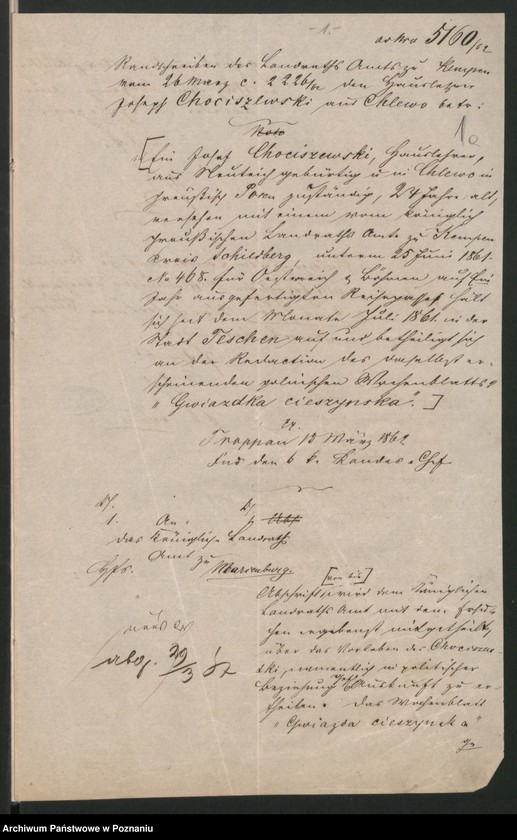 -1.-
ad Nro 5160/62
Randschreiben des Landraths Amts zu Kempen
vom 26 März c. 2226/62 den Hauslehrer
Joseph Chociszewski aus Chlewo betr:
10
Nota
[Ein Josef Chociszewski, Hauslehrer,
aus Neuteich gebürtig u. in Chlewo in
preußisch Posen zuständig, 24 Jahre alt,
versehen mit einem vom königlich
preußischen Landraths Amte zu Kempen
Kreis Schildberg, unterm 25 Juni 1861.
No 408. für Oestreich & Böhmen auf Ein
Jahr ausgefertigten Reisepasse hält
sich seit dem Monate Juli 1861. in der
Stadt Teschen auf und betheiligt sich
an der Redaction des daselbst er-
scheinenden polnischen Wochenblatts
"Gwiazdka cieszynska".]
Troppau 15 März 1862
k. k. Landes-Chef
1. An
das Königliche Landrath
Amt zu
Marienburg
[von bis]
Abschrift wird dem Königlichen
Landraths Amt mit dem Ersu-
chen ergebenst mitgetheilt,
über das Vorleben des Chocisze-
ski, namentlich in politischer
Beziehung Auskunft zu er-
theilen. Das Wochenblatt
"Gwiazda cieszynska"
abg. 30/3
Archiwum Państwowe w Poznaniu